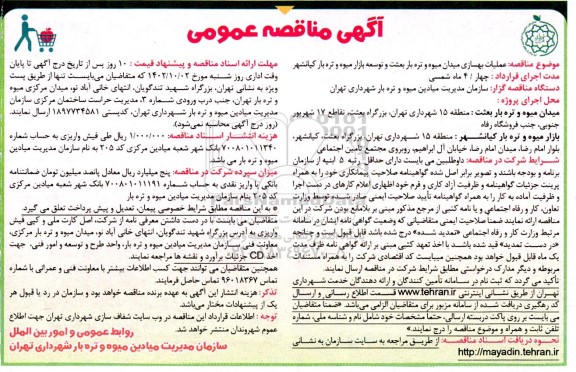 آگهی مناقصه عمومی
موضوع مناقصه: عملیات بهسازی میدان میوه و تره بار بعثت و توسعه بازار میوه و تره بار کیانشهر
مدت اجرای قرارداد: چهار / ۴ ماه شمسی
دستگاه مناقصه گزار: سازمان مدیریت میادین میوه و تره بار شهرداری تهران
محل اجرای پروژه:
میدان میوه و تره بار بعثت: منطقه ۱۵ شهرداری تهران، بزرگراه بعثت، تقاطع ۱۷ شهریور
جنوبی، جنب فروشگاه رفاه
بازار میوه و تره بار کیانشهر: منطقه ۱۵ شهرداری تهران، بزرگراه بعثت، کیانشهر،
بلوار امام رضا، میدان امام رضا، خیابان آل ابراهیم، روبروی مجتمع تامین اجتماعی
شرایط شرکت در مناقصه: داوطلبین می بایست دارای حداقل رتبه ۵ ابنیه از سازمان
برنامه و بودجه باشند و تصویر برابر اصل شده گواهینامه صلاحیت پیمانکاری خود را به همراه
پرینت جزئیات گواهینامه و ظرفیت آزاد کاری و فرم خود اظهاری اعلام کارهای در دست اجرا
و ظرفیت آماده به کار را به همراه گواهینامه تأیید صلاحیت ایمنی صادر شده توسط وزارت
تعاون، کار و رفاه اجتماعی و یا نامه کتبی از مرجع مذکور مبنی بر بلامانع بودن شرکت در این
مناقصه ارائه نمایند ضمنا صلاحیت ایمنی متقاضیانی که وضعیت گواهی نامه ایشان در سامانه
مرتبط وزارت کار و رفاه اجتماعی «تمدید شده» درج شده باشد قابل قبول است و چنانچه
«در دست تمدید» قید شده باشد با اخذ تعهد کتبی مبنی بر ارائه گواهی نامه ظرف مدت
یک ماه قابل قبول خواهد بود همچنین میبایست کد اقتصادی شرکت را به همراه مستندات
مربوطه و دیگر مدارک درخواستی مطابق شرایط شرکت در مناقصه ارسال نمایند.
تأکید می گردد که ثبت نام در سامانه تأمین کنندگان و ارائه دهندگان خدمت شهرداری
تهران از طریق نشانی اینترنتی www.tehran.ir قسمت اطلاع رسانی و ارسال
کد رهگیری دریافت شده از سامانه مزبور برای متقاضیان الزامی می‌باشد. «ضمنا متقاضیان
می بایست بر روی پاکت دربسته ارسالی، حتما مشخصات خود شامل نام و شناسه ملی، شماره
تلفن ثابت و همراه و موضوع مناقصه را درج نمایند.»
نحوه دریافت اسناد مناقصه: از طریق مراجعه به سایت سازمان به نشانی
http://mayadin.tehran.ir
مهلت ارائه اسناد مناقصه و پیشنهاد قیمت: ۱۰ روز پس از تاریخ درج آگهی تا پایان
وقت اداری روز شنبه مورخ ۱۴۰۲/۱۰/۰۲ که متقاضیان می‌بایست تنها از طریق پست
ویژه به نشانی تهران، بزرگراه شهید تندگویان، انتهای خانی آباد نو، میدان مرکزی میوه
و تره بار تهران، جنب درب ورودی شماره ۳، مدیریت حراست ساختمان مرکزی سازمان
مدیریت میادین میوه و تره بار شهرداری تهران، کدپستی ۱۸۹۷۷۳۴۵۸۱ ارسال نمایند.
(روز درج آگهی محاسبه نمی‌شود).
هزینه انتشار اسناد مناقصه: ۱/۰۰۰/۰۰۰ ریال طی فیش واریزی به حساب شماره
۷۰۰۸۰۱۰۱۱۳۴۰ بانک شهر شعبه میادین مرکزی کد ۲۰۵ به نام سازمان مدیریت میادین
میوه و تره بار می باشد.
میزان سپرده شرکت در مناقصه: پنج میلیارد ریال معادل پانصد میلیون تومان ضمانتنامه
بانکی یا واریز نقدی به حساب شماره ۷۰۰۸۰۱۰۱۱۱۹۱ بانک شهر شعبه میادین مرکزی
کد ۲۰۵ بنام سازمان مدیریت میادین میوه و تره بار
* به این مناقصه مطابق شرایط خصوصی پیمان تعدیل و پیش پرداخت تعلق می گیرد.
متقاضیان می بایست با در دست داشتن معرفی نامه از شرکت، اصل کارت ملی و کپی فیش
واریزی به آدرس بزرگراه شهید تندگویان، انتهای خانی آباد نو، میدان میوه و تره بار مرکزی،
معاونت فنی سازمان مدیریت میادین میوه و تره بار، واحد طرح و توسعه و امور فنی، جهت
اخذ CD جزئیات برآورد و نقشه ها مراجعه نمایند.
همچنین متقاضیان می توانند جهت کسب اطلاعات بیشتر با معاونت فنی و عمرانی با شماره
تماس ۹۶۰۱۸۳۶۷ تماس حاصل فرمایند.
تذکر: هزینه انتشار این آگهی به عهده برنده مناقصه خواهد بود و سازمان در رد یا قبول هر
یک از پیشنهادات مختار می‌باشد.
توجه: اطلاعات قرارداد این مناقصه در وب سایت شفاف سازی شهرداری تهران جهت اطلاع
عموم شهروندان منتشر خواهد شد.
روابط عمومی و امور بین الملل
سازمان مدیریت میادین میوه و تره بار شهرداری تهران